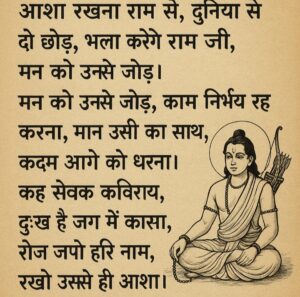 आशा रखना राम से, दुनिया से
दो छोड़, भला करेगे राम जी,
मन को उनसे जोड़।
मन को उनसे जोड़, काम निर्भय रह
करना, मान उसी का साथ,
कदम आगे को धरना।
कह सेवक कविराय,
दुःख है जग में कासा,
रोज जपो हरि नाम,
रखो उससे ही आशा।